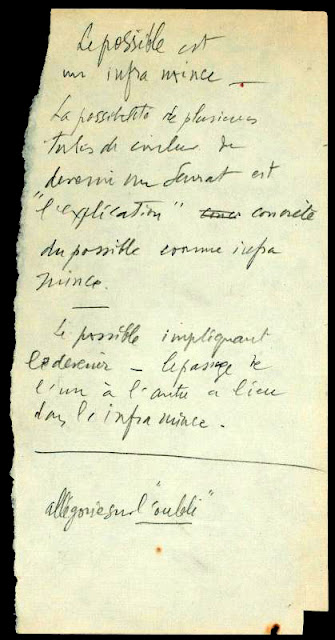 Le possible est
un infra mince _
La possibilité de plusieurs
tubes de couleur de
devenir un Seurat est
"l'explication" concrète
du possible comme infra
mince.
Le possible impliquant
le devenir – le passage de
l'un à l'autre a lieu
dans l'infra mince.
allégorie sur "l'oubli"